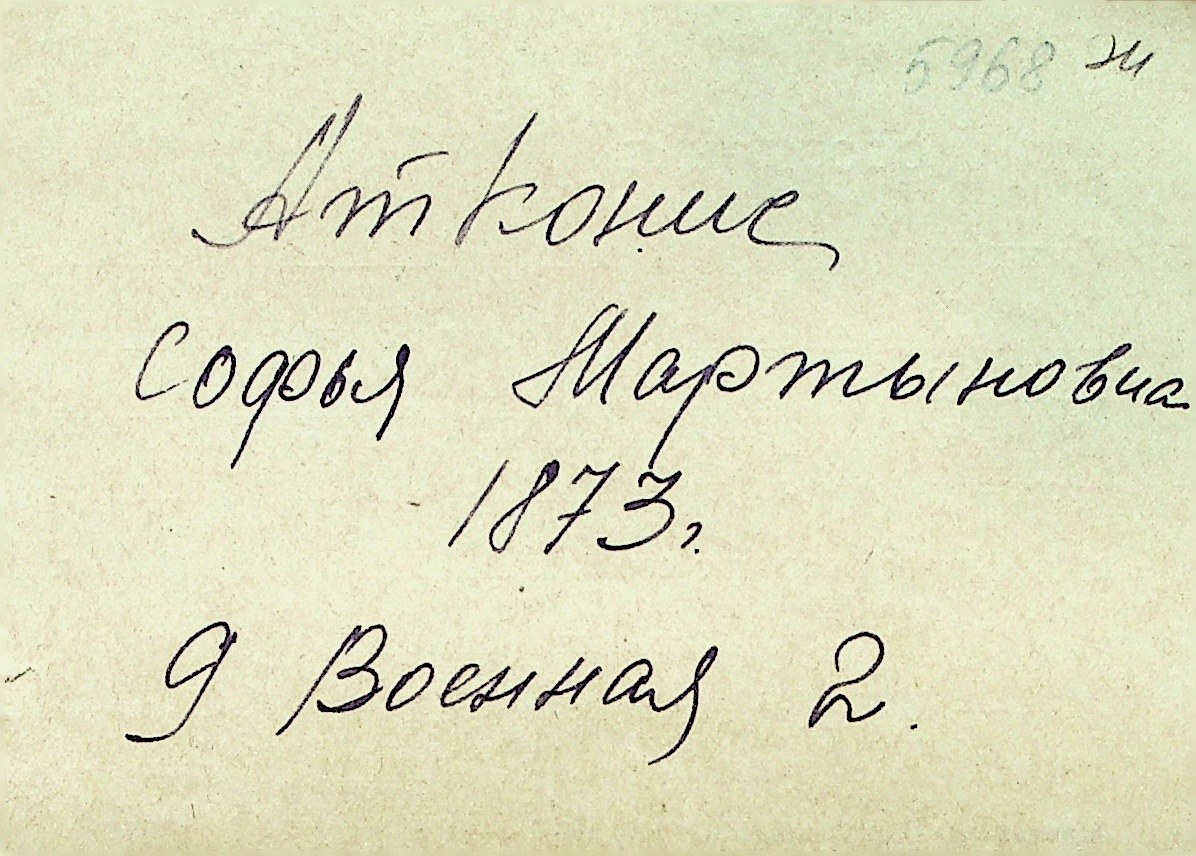 5968 ж
Атконис
Софья Мартыновна
1873г.
9 Военная 2.